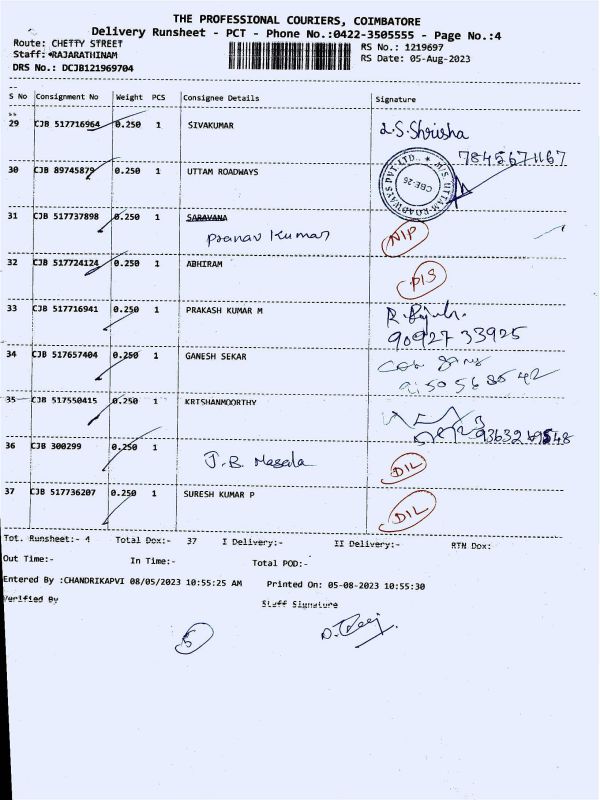 THE PROFESSIONAL COURIERS, COIMBATORE
Delivery Runsheet - PCT - Phone No.:0422-3505555 - Page No.:4
Route: CHETTY STREET RS No.: 1219697
Staff:*RAJARATHINAM RS Date: 05-Aug-2023
DRS No.: DCJB121969704
S No Consignment No Weight PCS Consignee Details Signature
29 CJB 517716964 0.250 1 SIVAKUMAR L.S.Shrisha
7845671167
30 CJB 89745879 0.250 1 UTTAM ROADWAYS M/S UTTAM ROADWAYS PVT.LTD., ★ CBE-26
31 CJB 517737898 0.250 1 SARAVANA NIP
Pranav Kumar
32 CJB 517724124 0.250 1 ABHIRAM DIS
33 CJB 517716941 0.250 1 PRAKASH KUMAR M
90927 33925
34 CJB 517657404 0.250 1 GANESH SEKAR
35 CJB 517550415 0.250 1 KRISHANMOORTHY
36 CJB 300299 0.250 1
J.B. Masala DIL
37 CJB 517736207 0.250 1 SURESH KUMAR P DIL
Tot. Runsheet:- 4 Total Dox:- 37 I Delivery:- II Delivery:- RTN Dox:
Out Time:- In Time:- Total POD:-
Entered By :CHANDRIKAPVI 08/05/2023 10:55:25 AM Printed On: 05-08-2023 10:55:30
Verified By Staff Signature
5